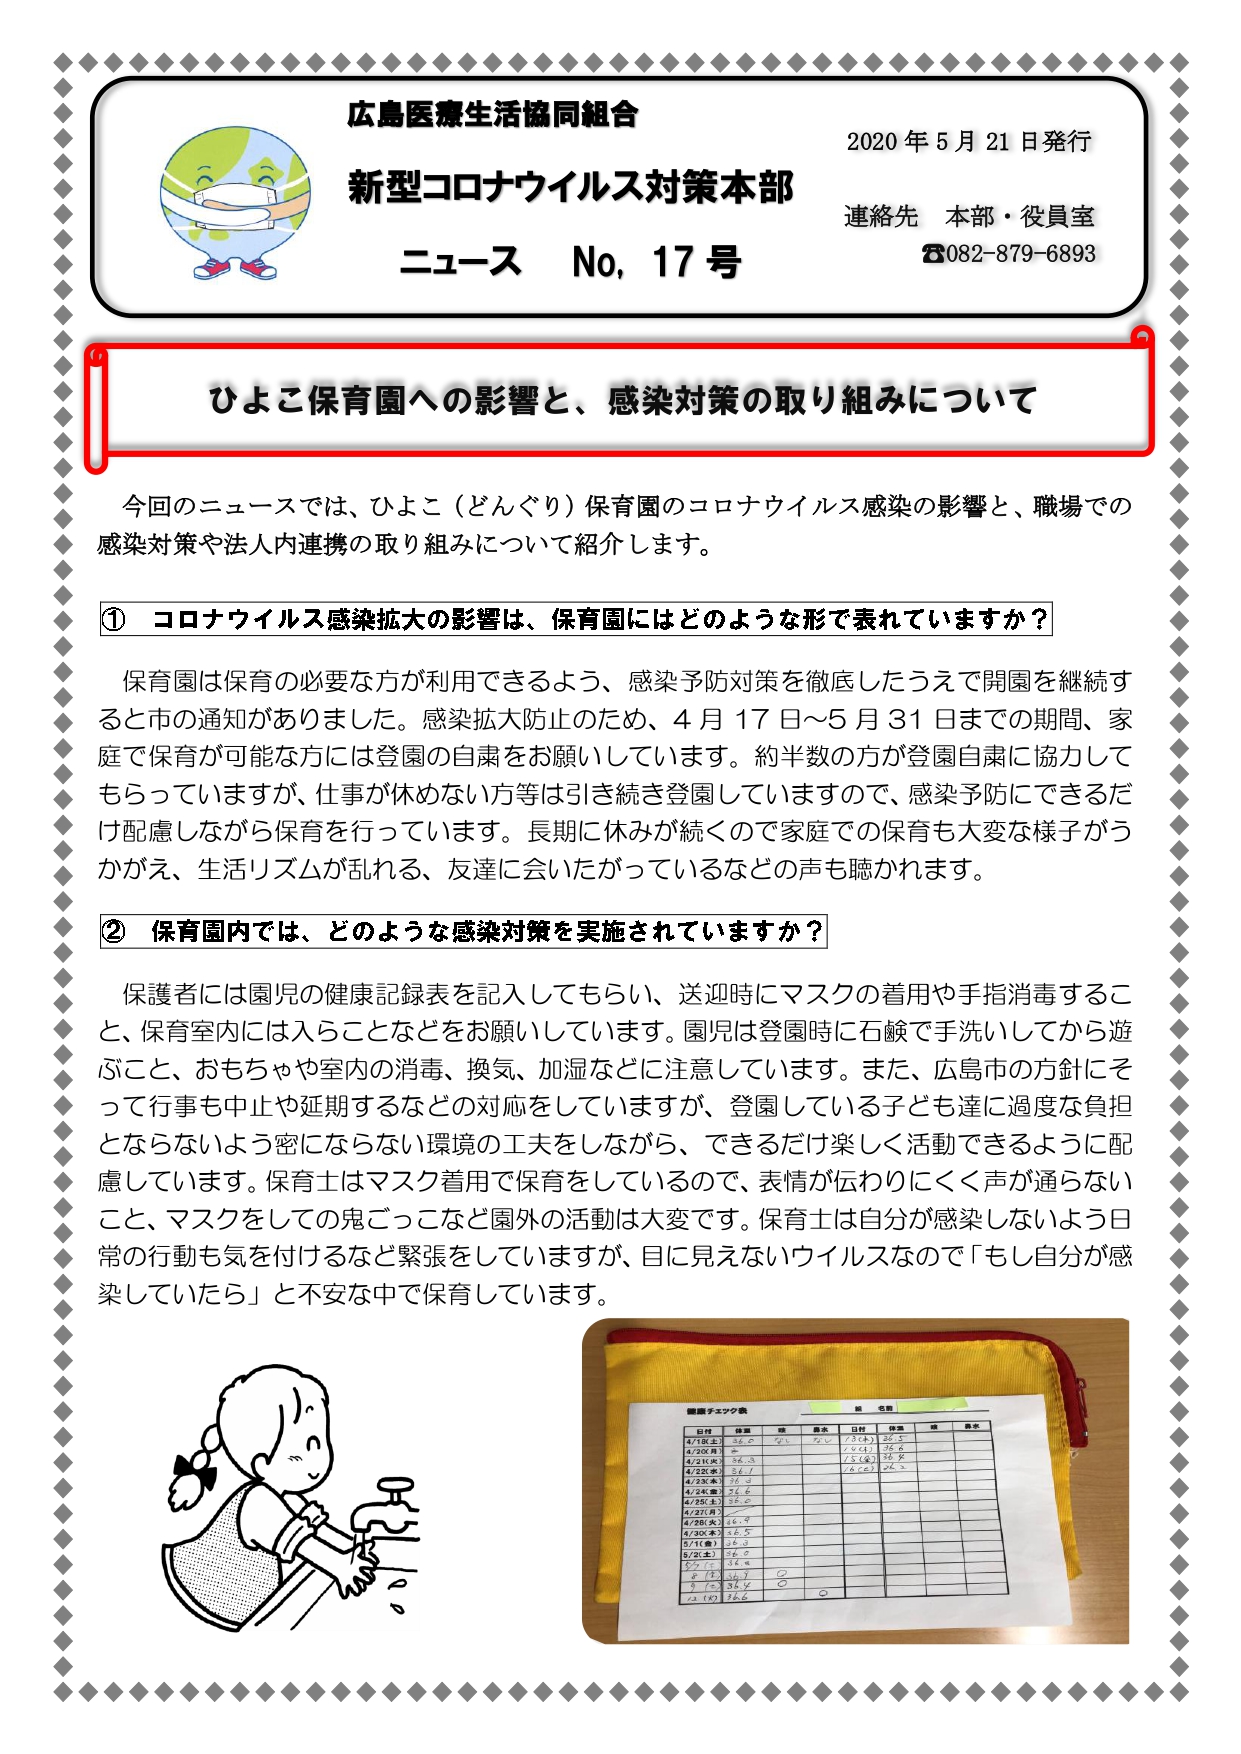 広島医療生活協同組合
新型コロナウイルス対策本部
ニュース　No, 17 号
2020 年 5 月 21 日発行
連絡先　本部・役員室
☎082-879-6893
ひよこ保育園への影響と、感染対策の取り組みについて
今回のニュースでは、ひよこ（どんぐり）保育園のコロナウイルス感染の影響と、職場での
感染対策や法人内連携の取り組みについて紹介します。
①　コロナウイルス感染拡大の影響は、保育園にはどのような形で表れていますか？
保育園は保育の必要な方が利用できるよう、感染予防対策を徹底したうえで開園を継続す
ると市の通知がありました。感染拡大防止のため、4 月 17 日～5 月 31 日までの期間、家
庭で保育が可能な方には登園の自粛をお願いしています。約半数の方が登園自粛に協力して
もらっていますが、仕事が休めない方等は引き続き登園していますので、感染予防にできるだ
け配慮しながら保育を行っています。長期に休みが続くので家庭での保育も大変な様子がう
かがえ、生活リズムが乱れる、友達に会いたがっているなどの声も聴かれます。
②　保育園内では、どのような感染対策を実施されていますか？
保護者には園児の健康記録表を記入してもらい、送迎時にマスクの着用や手指消毒するこ
と、保育室内には入らことなどをお願いしています。園児は登園時に石鹸で手洗いしてから遊
ぶこと、おもちゃや室内の消毒、換気、加湿などに注意しています。また、広島市の方針にそ
って行事も中止や延期するなどの対応をしていますが、登園している子ども達に過度な負担
とならないよう密にならない環境の工夫をしながら、できるだけ楽しく活動できるように配
慮しています。保育士はマスク着用で保育をしているので、表情が伝わりにくく声が通らない
こと、マスクをしての鬼ごっこなど園外の活動は大変です。保育士は自分が感染しないよう日
常の行動も気を付けるなど緊張をしていますが、目に見えないウイルスなので「もし自分が感
染していたら」と不安な中で保育しています。
健康チェック表　組　名前
日付　体温　咳　鼻水　日付　体温　咳　鼻水
4/18(土) 36.0 なし なし 13(水) 36.5
4/20(月)
4/21(火) 36.3
4/22(水) 36.1
4/23(木) 36.3
4/24(金) 36.6
4/25(土) 36.0
4/27(月)
4/28(火) 36.9
4/30(木) 36.5
5/1(金) 36.3
5/2(土) 36.0